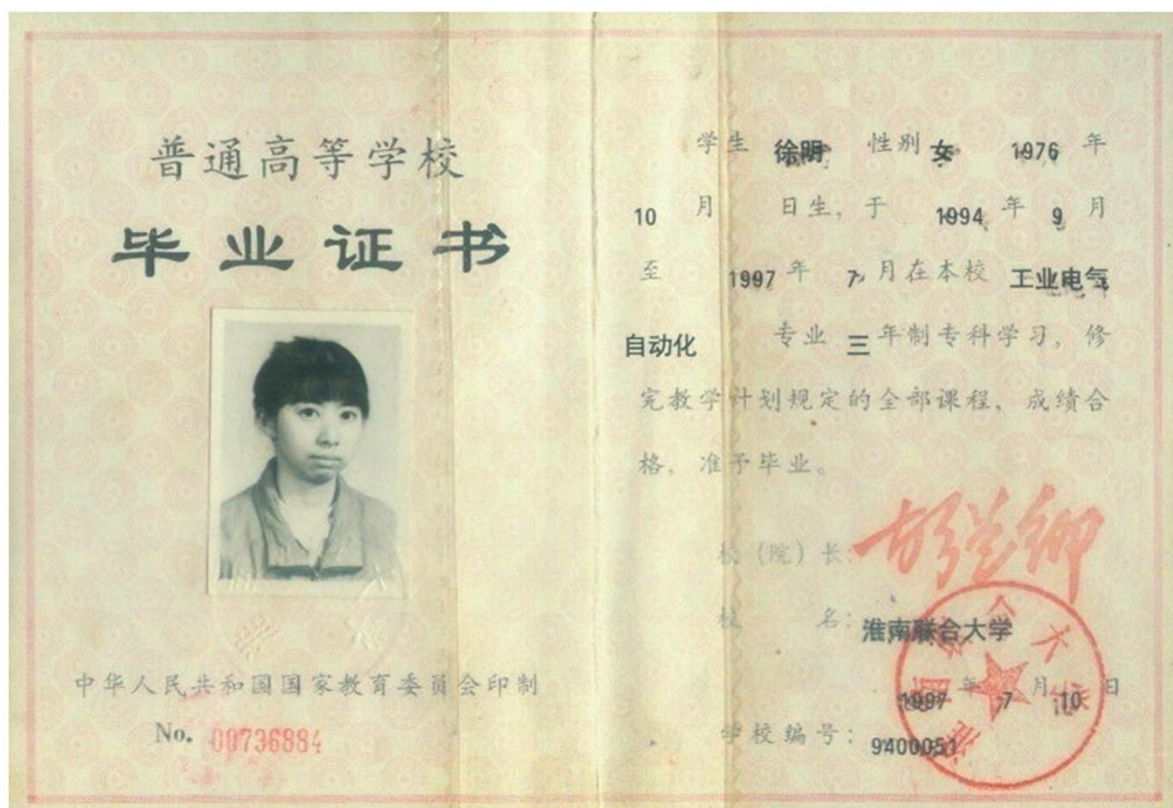 普通高等学校
毕业证书
中华人民共和国国家教育委员会印制
No. 00736884
学生 徐明 性别 女 1976 年
10 月 日生, 于 1994 年 9 月
至 1997 年 7 月在本校 工业电气
自动化 专业 三 年制专科学习, 修
完教学计划规定的全部课程, 成绩合
格, 准予毕业。
校（院）长:
校 名: 淮南联合大学
1997 年 7 月 10 日
学校编号: 9400051